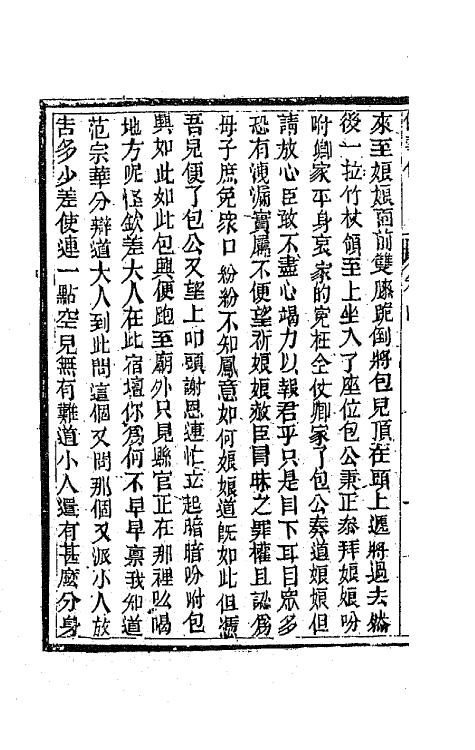 來至娘娘面前雙膝跪倒將包兒頂在頭上遞將過去然
後一拉竹杖領至上坐入了座位包公秉正參拜娘娘吩
咐卿家平身哀家的冤枉全仗卿家了包公奏道娘娘但
請放心臣敢不盡心竭力以報君乎只是目下耳目眾多
恐有洩漏實屬不便望祈娘娘赦臣冒昧之罪權且認為
母子庶免眾口紛紛不知鳳意如何娘娘道既如此但憑
吾兒便了包公又望上叩頭謝恩連忙立起暗暗吩咐包
興如此如此包興便跑至廟外只見縣官正在那裡吆喝
地方呢怪欽差大人在此宿壇你為何不早早禀我知道
范宗華分辯道大人到此問這個又問那個又派小人放
告多少差使連一點空兒無有難道小人還有甚麼分身